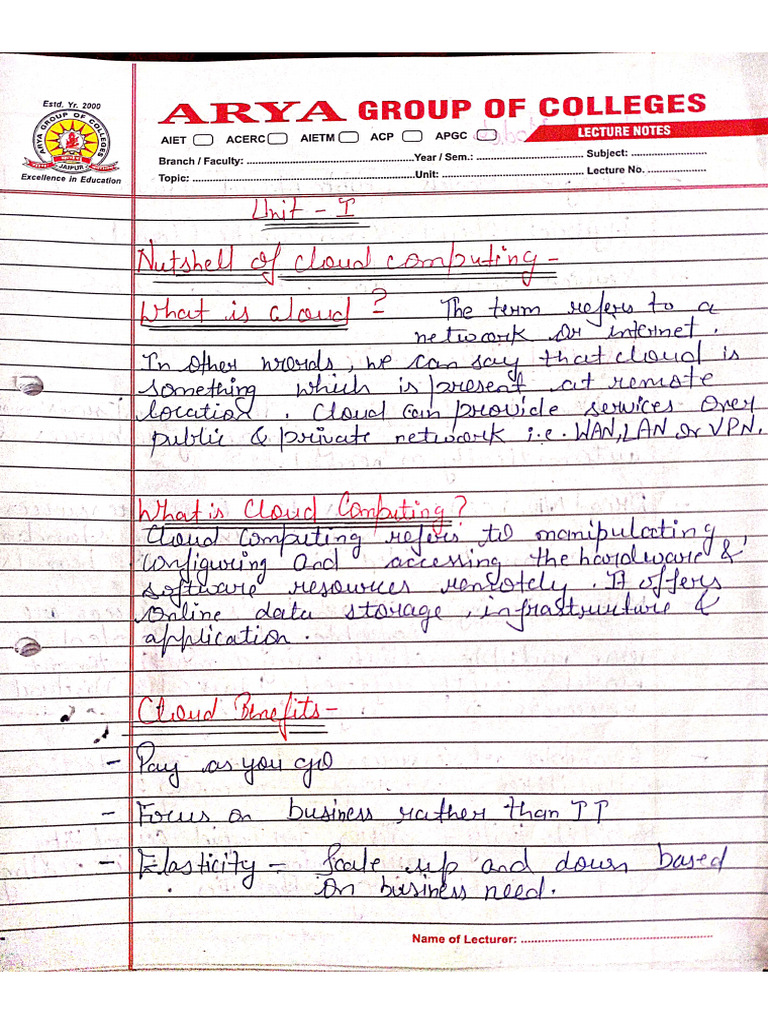 Estd. Yr. 2000
ARYA GROUP OF COLLEGES
JAIPUR
Excellence in Education
ARYA GROUP OF COLLEGES
AIET ACERC AIETM ACP APGC LECTURE NOTES
Branch / Faculty: Year / Sem.: Subject:
Topic: Unit: Lecture No.
Unit - I
Nutshell of cloud computing -
What is cloud? The term refers to a
network or internet.
In other words, we can say that cloud is
something which is present at remote
location. Cloud can provide services over
public & private network i.e. WAN, LAN or VPN.
What is Cloud Computing?
Cloud computing refers to manipulating,
configuring and accessing the hardware &
software resources remotely. It offers
online data storage, infrastructure &
application.
Cloud Benefits -
- Pay as you go
- Focus on business rather than IT
- Elasticity - Scale up and down based
on business need.
Name of Lecturer: